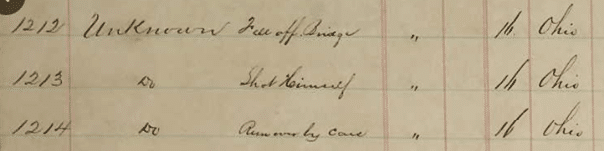 1212 Unknown Fell off Bridge " 16 Ohio
1213 Do Shot Himself " 16 Ohio
1214 Do Run over by cars " 16 Ohio